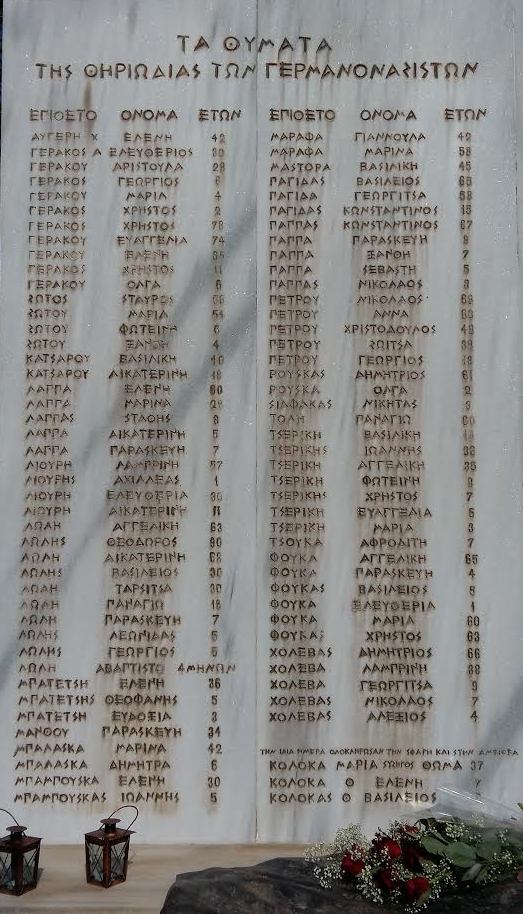 ΤΑ ΘΥΜΑΤΑ
ΤΗΣ ΘΗΡΙΩΔΙΑΣ ΤΩΝ ΓΕΡΜΑΝΟΝΑΖΙΣΤΩΝ
ΕΠΙΘΕΤΟ ΟΝΟΜΑ ΕΤΩΝ
ΑΥΓΕΡΗ Χ ΕΛΕΝΗ 42
ΓΕΡΑΚΟΣ Α ΕΛΕΥΘΕΡΙΟΣ
ΓΕΡΑΚΟΥ ΑΡΙΣΤΟΥΛΑ 28
ΓΕΡΑΚΟΣ ΓΕΩΡΓΙΟΣ 6
ΓΕΡΑΚΟΥ ΜΑΡΙΑ 4
ΓΕΡΑΚΟΣ ΧΡΗΣΤΟΣ 2
ΓΕΡΑΚΟΣ ΧΡΗΣΤΟΣ 78
ΓΕΡΑΚΟΥ ΕΥΑΓΓΕΛΙΑ 74
ΓΕΡΑΚΟΥ ΕΛΕΝΗ 35
ΓΕΡΑΚΟΣ ΧΡΗΣΤΟΣ 11
ΓΕΡΑΚΟΥ ΟΛΓΑ 6
ΖΩΤΟΣ ΣΤΑΥΡΟΣ
ΖΩΤΟΥ ΜΑΡΙΑ
ΖΩΤΟΥ ΦΩΤΕΙΝΗ 6
ΖΩΤΟΥ ΞΑΝΘΗ 4
ΚΑΤΣΑΡΟΥ ΒΑΣΙΛΙΚΗ
ΚΑΤΣΑΡΟΥ ΑΙΚΑΤΕΡΙΝΗ
ΛΑΠΠΑ ΕΛΕΝΗ 60
ΛΑΠΠΑ ΜΑΡΙΝΑ
ΛΑΠΠΑΣ ΣΤΑΘΗΣ
ΛΑΠΠΑ ΑΙΚΑΤΕΡΙΝΗ 5
ΛΑΠΠΑ ΠΑΡΑΣΚΕΥΗ 7
ΛΙΟΥΡΗ ΛΑΜΠΡΙΝΗ 57
ΛΙΟΥΡΗΣ ΑΧΙΛΛΕΑΣ 1
ΛΙΟΥΡΗ ΕΛΕΥΘΕΡΙΑ
ΛΙΟΥΡΗ ΑΙΚΑΤΕΡΙΝΗ
ΛΩΛΗ ΑΓΓΕΛΙΚΗ 63
ΛΩΛΗΣ ΘΕΟΔΩΡΟΣ
ΛΩΛΗ ΑΙΚΑΤΕΡΙΝΗ
ΛΩΛΗΣ ΒΑΣΙΛΕΙΟΣ
ΛΩΛΗ ΤΑΡΣΙΤΣΑ
ΛΩΛΗ ΠΑΝΑΓΙΩ
ΛΩΛΗ ΠΑΡΑΣΚΕΥΗ 7
ΛΩΛΗΣ ΛΕΩΝΙΔΑΣ 5
ΛΩΛΗΣ ΓΕΩΡΓΙΟΣ 5
ΛΩΛΗ ΑΒΑΠΤΙΣΤΟ 4ΜΗΝΩΝ
ΜΠΑΤΕΤΣΗ ΕΛΕΝΗ 36
ΜΠΑΤΕΤΣΗΣ ΘΕΟΦΑΝΗΣ 5
ΜΠΑΤΕΤΣΗ ΕΥΔΟΞΙΑ 3
ΜΑΝΘΟΥ ΠΑΡΑΣΚΕΥΗ 34
ΜΠΑΛΑΣΚΑ ΜΑΡΙΝΑ 42
ΜΠΑΛΑΣΚΑ ΔΗΜΗΤΡΑ 6
ΜΠΑΜΠΟΥΣΚΑ ΕΛΕΝΗ 30
ΜΠΑΜΠΟΥΣΚΑΣ ΙΩΑΝΝΗΣ 5
ΕΠΙΘΕΤΟ ΟΝΟΜΑ ΕΤΩΝ
ΜΑΡΑΦΑ ΓΙΑΝΝΟΥΛΑ 42
ΜΑΡΑΦΑ ΜΑΡΙΝΑ 58
ΜΑΣΤΟΡΑ ΒΑΣΙΛΙΚΗ 45
ΠΑΓΙΔΑΣ ΒΑΣΙΛΕΙΟΣ
ΠΑΓΙΔΑ ΓΕΩΡΓΙΤΣΑ 58
ΠΑΓΙΔΑΣ ΚΩΝΣΤΑΝΤΙΝΟΣ
ΠΑΠΠΑΣ ΚΩΝΣΤΑΝΤΙΝΟΣ 67
ΠΑΠΠΑ ΠΑΡΑΣΚΕΥΗ
ΠΑΠΠΑ ΞΑΝΘΗ 7
ΠΑΠΠΑ ΣΕΒΑΣΤΗ 5
ΠΑΠΠΑΣ ΝΙΚΟΛΑΟΣ
ΠΕΤΡΟΥ ΝΙΚΟΛΑΟΣ
ΠΕΤΡΟΥ ΑΝΝΑ
ΠΕΤΡΟΥ ΧΡΙΣΤΟΔΟΥΛΟΣ
ΠΕΤΡΟΥ ΖΩΙΤΣΑ
ΠΕΤΡΟΥ ΓΕΩΡΓΙΟΣ
ΡΟΥΣΚΑΣ ΔΗΜΗΤΡΙΟΣ 61
ΡΟΥΣΚΑ ΟΛΓΑ 2
ΣΙΑΦΑΚΑΣ ΝΙΚΗΤΑΣ
ΤΟΛΗ ΠΑΝΑΓΙΩ
ΤΣΕΡΙΚΗ ΒΑΣΙΛΙΚΗ
ΤΣΕΡΙΚΗΣ ΙΩΑΝΝΗΣ
ΤΣΕΡΙΚΗ ΑΓΓΕΛΙΚΗ 35
ΤΣΕΡΙΚΗ ΦΩΤΕΙΝΗ
ΤΣΕΡΙΚΗΣ ΧΡΗΣΤΟΣ 7
ΤΣΕΡΙΚΗ ΕΥΑΓΓΕΛΙΑ 5
ΤΣΕΡΙΚΗ ΜΑΡΙΑ 3
ΤΣΟΥΚΑ ΑΦΡΟΔΙΤΗ 7
ΦΟΥΚΑ ΑΓΓΕΛΙΚΗ 65
ΦΟΥΚΑ ΠΑΡΑΣΚΕΥΗ 4
ΦΟΥΚΑΣ ΒΑΣΙΛΕΙΟΣ
ΦΟΥΚΑ ΕΛΕΥΘΕΡΙΑ 1
ΦΟΥΚΑ ΜΑΡΙΑ 60
ΦΟΥΚΑΣ ΧΡΗΣΤΟΣ 63
ΧΟΛΕΒΑΣ ΔΗΜΗΤΡΙΟΣ 66
ΧΟΛΕΒΑ ΛΑΜΠΡΙΝΗ 38
ΧΟΛΕΒΑ ΓΕΩΡΓΙΤΣΑ 9
ΧΟΛΕΒΑΣ ΝΙΚΟΛΑΟΣ 7
ΧΟΛΕΒΑΣ ΑΛΕΞΙΟΣ 4
ΤΗΝ ΙΔΙΑ ΗΜΕΡΑ ΟΛΟΚΛΗΡΩΣΑΝ ΤΗΝ ΣΦΑΓΗ ΚΑΙ ΣΤΗΝ
ΚΟΛΟΚΑ ΜΑΡΙΑ ΣΥΖΥΓΟΣ ΘΩΜΑ 37
ΚΟΛΟΚΑ Θ ΕΛΕΝΗ
ΚΟΛΟΚΑΣ Θ ΒΑΣΙΛΕΙΟΣ